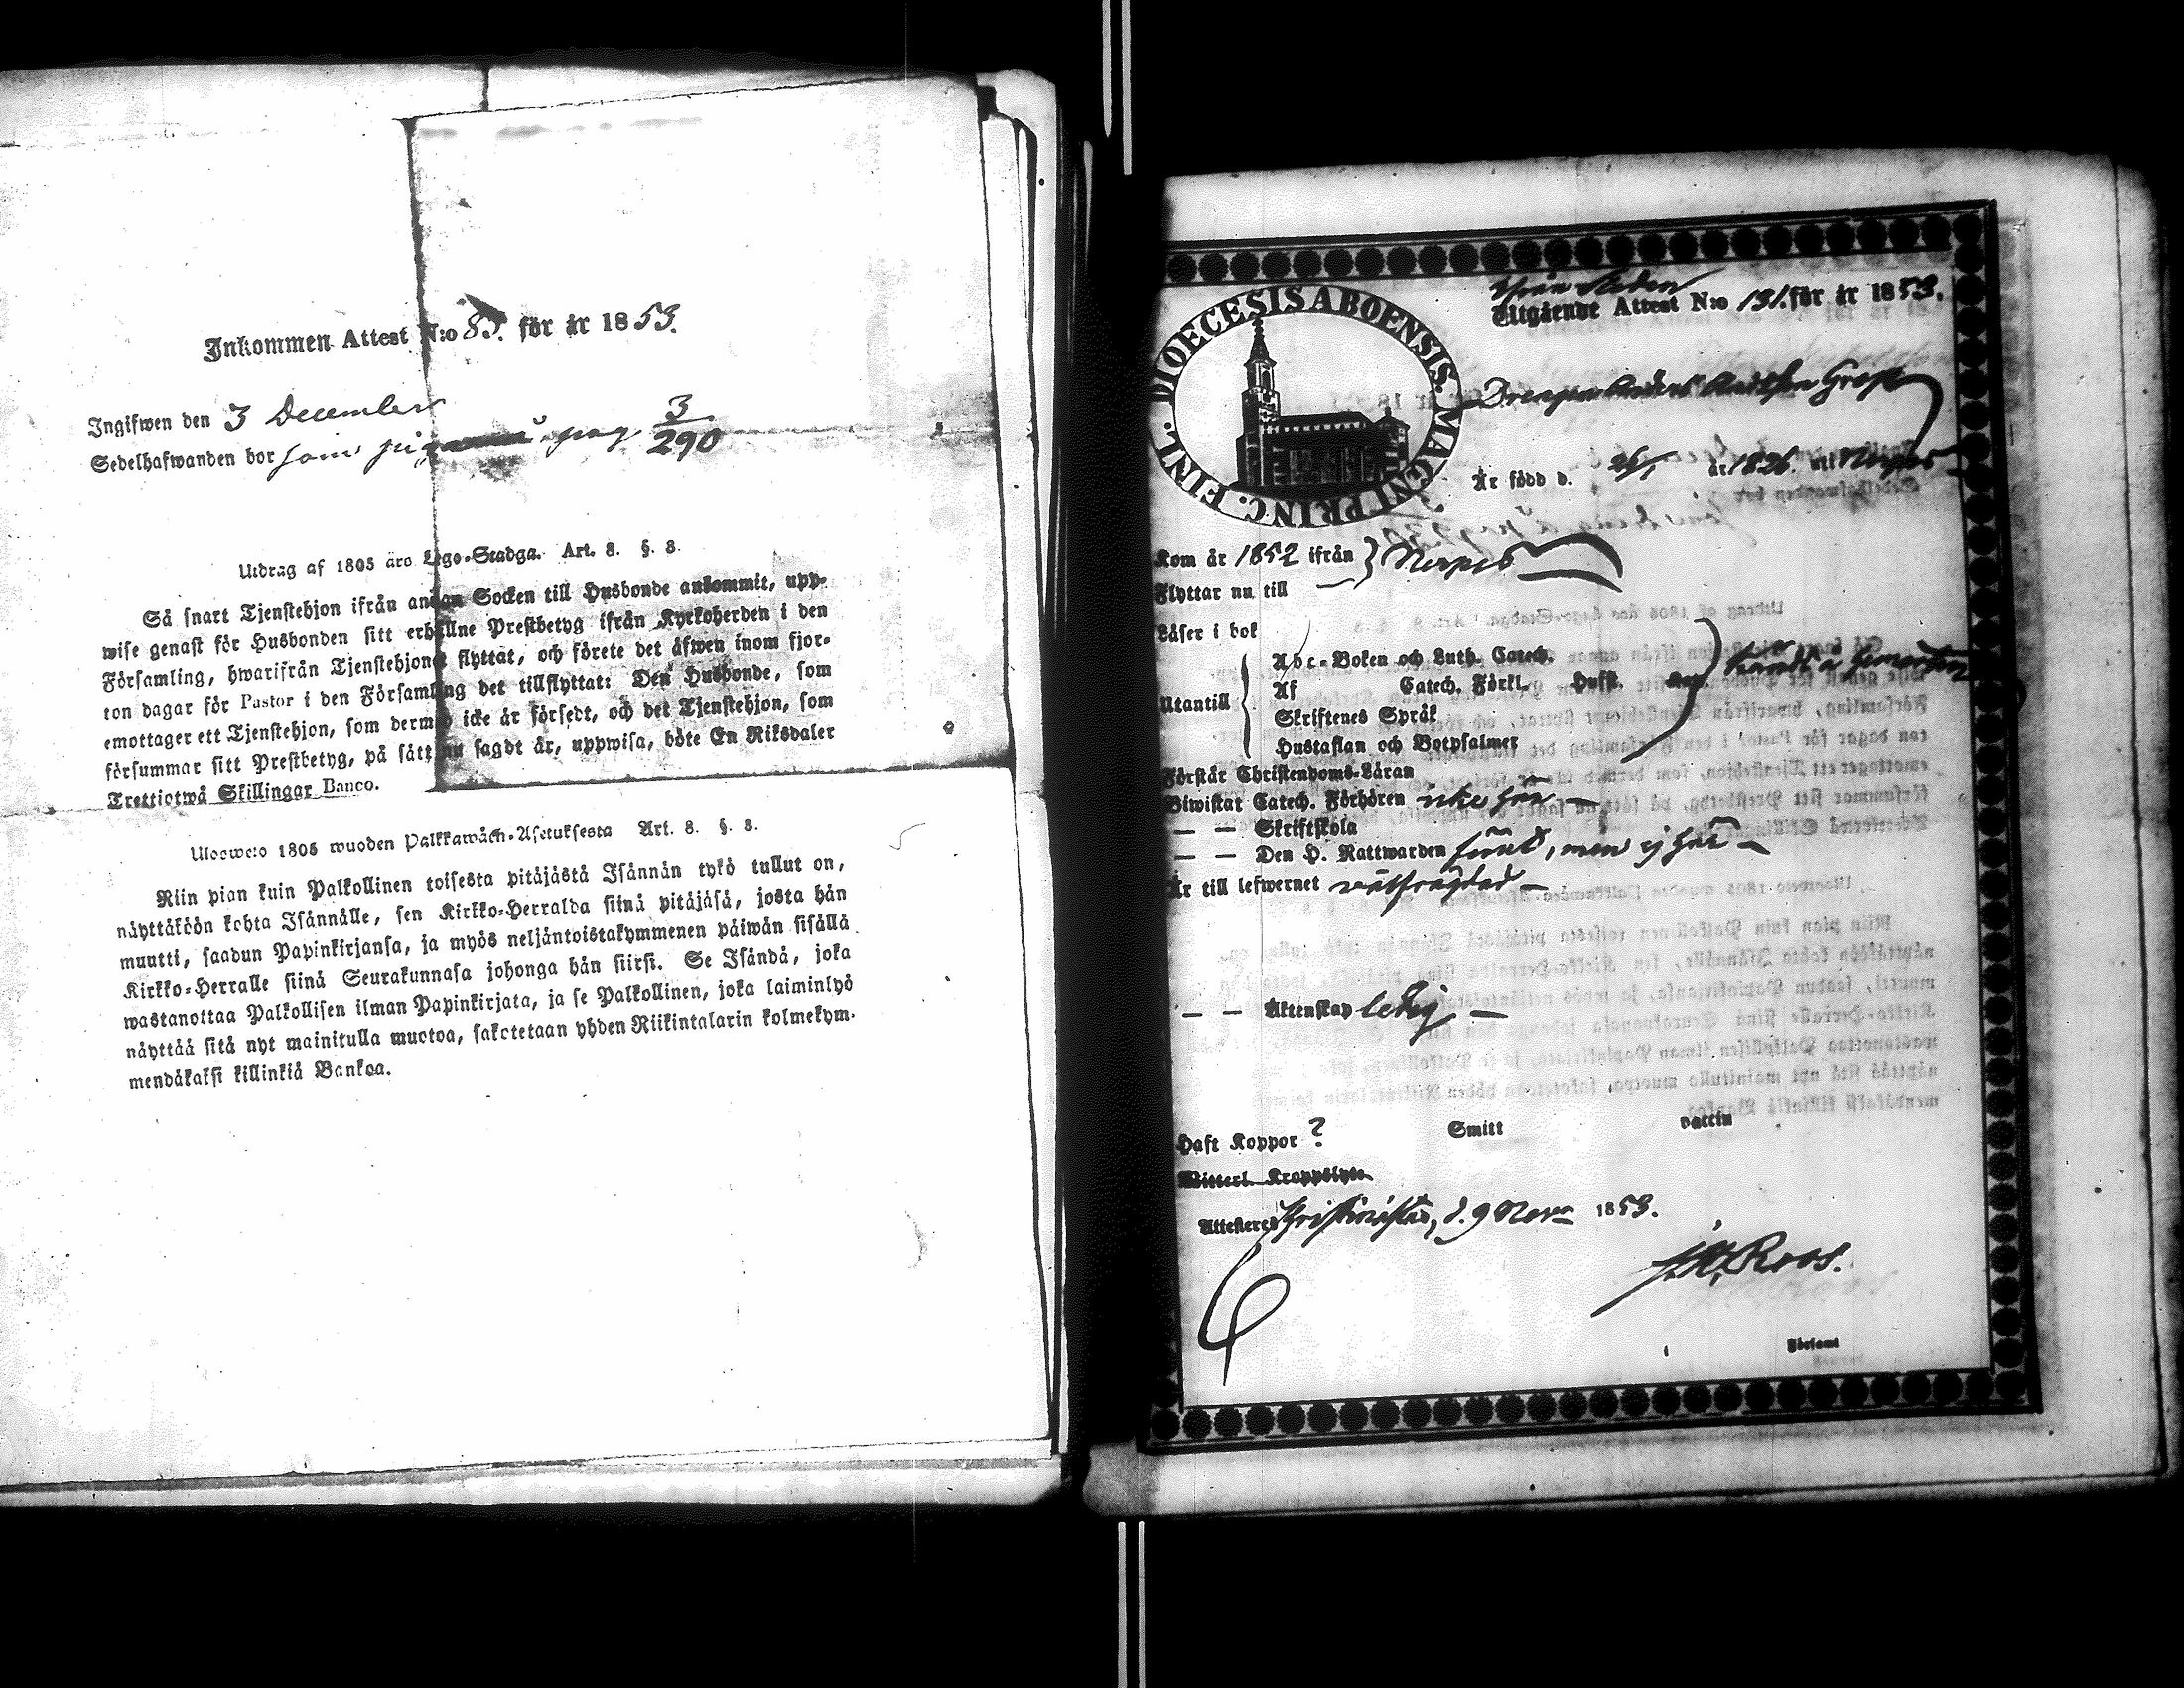 Inkommen Attest N:o 83. för år 1853.
Ingifwen den 3 December
Sedelhafwanden bor som piga å pag. 3/290
Utdrag af 1805 års Lego-Stadga. Art. 8. §. 8.
Så snart Tjenstehjon ifrån annan Socken till Husbonde ankommit, upp-
wise genast för Husbonden sitt erhållne Prestbetyg ifrån Kyrkoherden i den
Församling, hwarifrån Tjenstehjonet flyttat, och förete det äfwen inom fjor-
ton dagar för Pastor i den Församling det tillflyttat: Den Husbonde, som
emottager ett Tjenstehjon, som dermed icke är försedt, och det Tjenstehjon, som
försummar sitt Prestbetyg, på sätt nu sagdt är, uppwisa, böte En Riksdaler
Trettiotwå Skillingar Banco.
Ulosweto 1805 wuoden Palkkawäen-Asetuksesta Art. 8. §. 8.
Niin pian kuin Palkollinen toisesta pitäjästä Isännän tykö tullut on,
näyttäköön kohta Isännälle, sen Kirkko-Herralda siinä pitäjäsä, josta hän
muutti, saadun Papinkirjansa, ja myös neljäntoistakymmenen päiwän sisällä
Kirkko-Herralle siinä Seurakunnasa johonga hän siirsi. Se Isändä, joka
wastanottaa Palkollisen ilman Papinkirjata, ja se Palkollinen, joka laiminlyö
näyttää sitä nyt mainitulla muotoa, sakotetaan yhden Riikintalarin kolmekym-
mendäkaksi killinkiä Bankoa.
DIOECESIS ABOENSIS. MAGNI PRINC. FINL.
ifrån Staden
Utgående Attest N:o 131. för år 1853.
Drengen Anders Andersson Grop
Är född d. 26/1 år 1826. uti Nerpes
Kom år 1852 ifrån } Nerpes
Flyttar nu till —
Läser i bok
Utantill
Abc-Boken och Luth. Catech.
Af Catech. Förkl. Hufst.
Skriftenes Språk
Hustaflan och Botpsalmer
Förstår Christendoms-Läran
Biwistat Catech. Förhören icke här —
— — Skriftskola
— — Den H. Nattwarden här —
Är till lefwernet
— — Äktenskap ledig —
Haft Koppor ? Smitt vaccin
Witterl. Kroppslyte
Attesteres Kristinestad, d. 9 Nov 1853.
Roos.
Församl